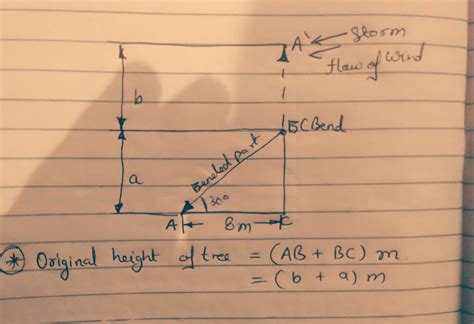 A' ← Storm
flow of Wind
b
B C Bend
Bended part
a
30°
A 8m C
* Original height of tree = (AB + BC) m.
= (b + a) m